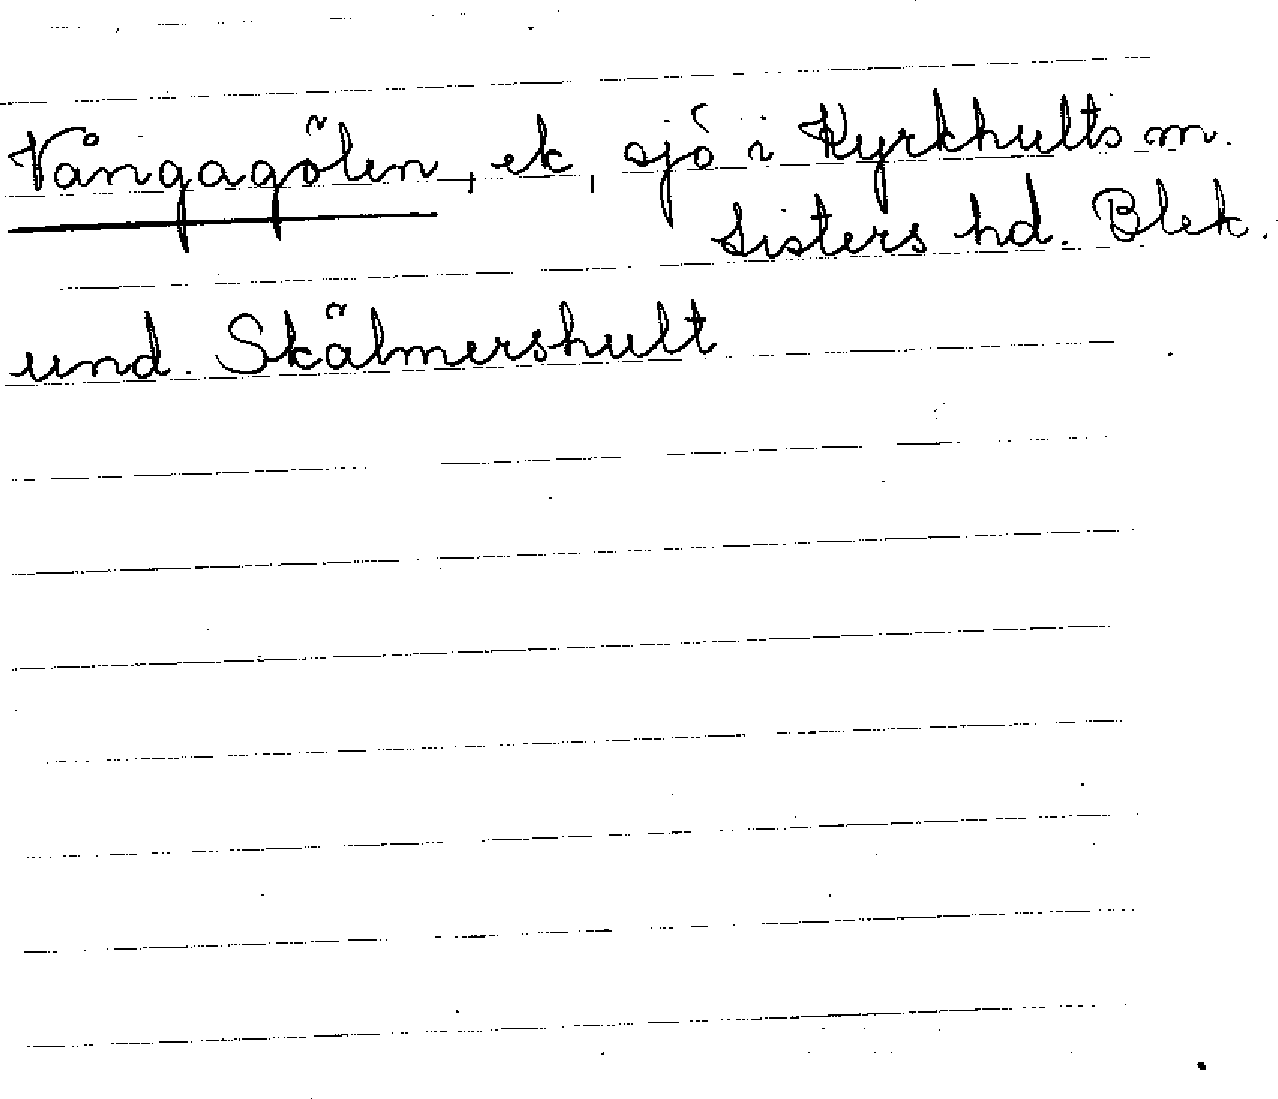 Vångagölen, ek, sjö i Kyrkhults m.
Listers hd. Blek.
und. Skälmershult